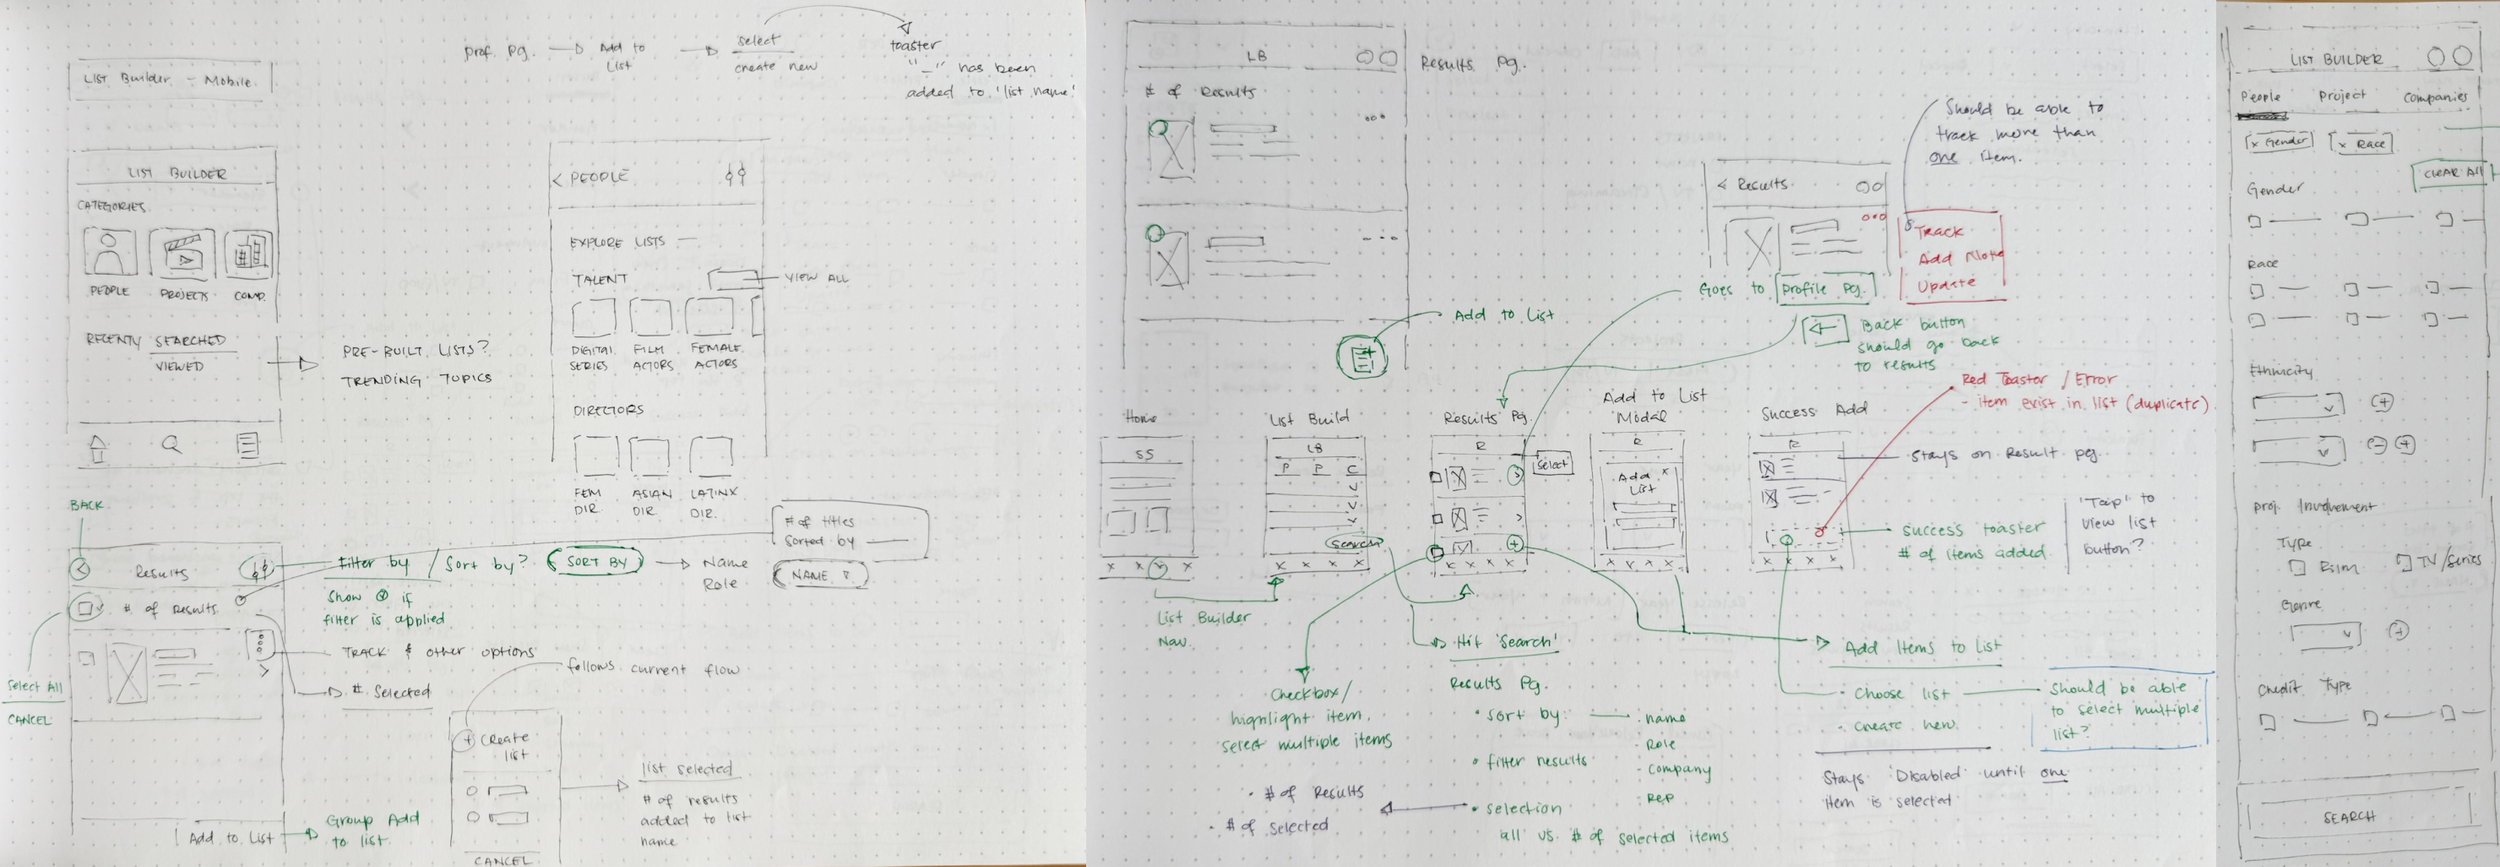 List Builder - Mobile
prof. pg. → Add to List → select
create new
toaster
"_" has been
added to 'list name'
LIST BUILDER
CATEGORIES
PEOPLE PROJECTS COMP.
RECENTY SEARCHED
VIEWED
PRE-BUILT LISTS?
TRENDING TOPICS
< PEOPLE
EXPLORE LISTS
TALENT
VIEW ALL
DIGITAL SERIES
FILM ACTORS
FEMALE ACTORS
DIRECTORS
FEM DIR.
ASIAN DIR.
LATINX DIR.
BACK
< Results
# of Results
Filter by / Sort by?
SORT BY
Name
Role
# of titles
Sorted by
NAME
Show if
filter is applied
TRACK & other options
# Selected
Select All
CANCEL
Add to List
Group Add
to list
follows current flow
+ Create
list
CANCEL
list selected
# of results
added to list
name
LB
Results Pg.
# of Results
Add to List
Should be able to
track more than
one item.
< Results
Track
Add Note
Update
Goes to profile pg.
Back button
should go back
to results
Red Toaster / Error
- item exist in list (duplicate)
Home
SS
List Build
LB
P P C
Search
Results Pg.
R
Select
Add to List
Modal
R
Add x
List
Success Add
R
x x x
x x x x
x x x x
x x x x
x x x x
Stays on Result pg.
success toaster
# of items added
'Tap' to
view list
button?
List Builder
Nav
Hit 'Search'
Results Pg.
• sort by
- name
- Role
- company
- Rep
• filter results
• selection
all vs. # of selected items
Checkbox/
highlight item,
select multiple items
• # of Results
• # of Selected
Add Items to List
- Choose list
- Create new
Should be able
to select multiple
list?
Stays 'Disabled' until one
item is selected
LIST BUILDER
People Project Companies
x Gender x Race
CLEAR All
Gender
Race
Ethnicity
Proj. Involvement
Type
Film TV/Series
Genre
Credit Type
SEARCH